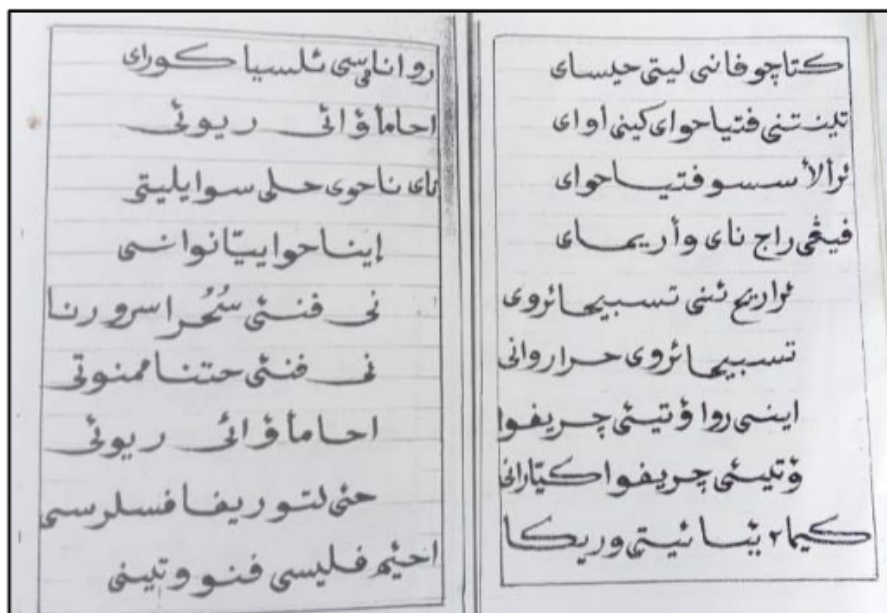 كتاچو فانى ليتى حيساى
تينتنى فتياحواى كينى أواى
ئرألأ سسو فتياحواى
فيڠى راج ناى وأريماى
ئراريح ئنى تسبيحائروى
تسبيحائروى حراروانى
اينسى روا ؤتيئى چريفوا
ؤتيئى چريفوا كيتارانى
كيما ئيتى وريكا
رواناسى ئلسيا كوراى
احامأ ؤائى ريوئى
ناى ناحوى حلى سوايليتى
إيناحواييتانوانسى
نى فنئى سُحُراسرورنا
نى فنئى حتناممنوتى
احامأ ؤائى ريوئى
حئى لتوريفا فسلرسى
احيئم فليسى فنووتينى